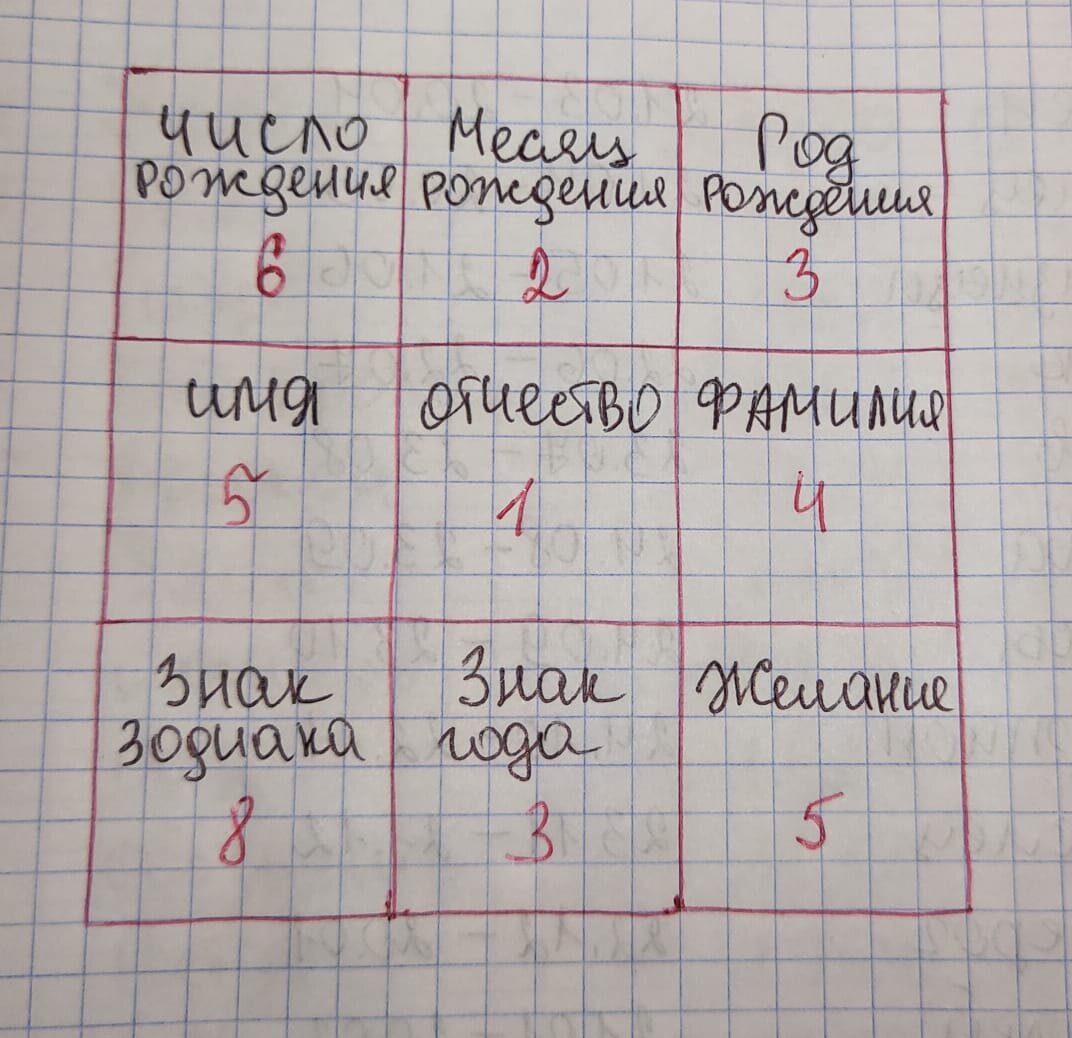 число
рождения
6
Месяц
рождения
2
Год
рождения
3
имя
5
отчество
1
ФАМИЛИЯ
4
Знак
зодиака
8
Знак
года
3
Желание
5